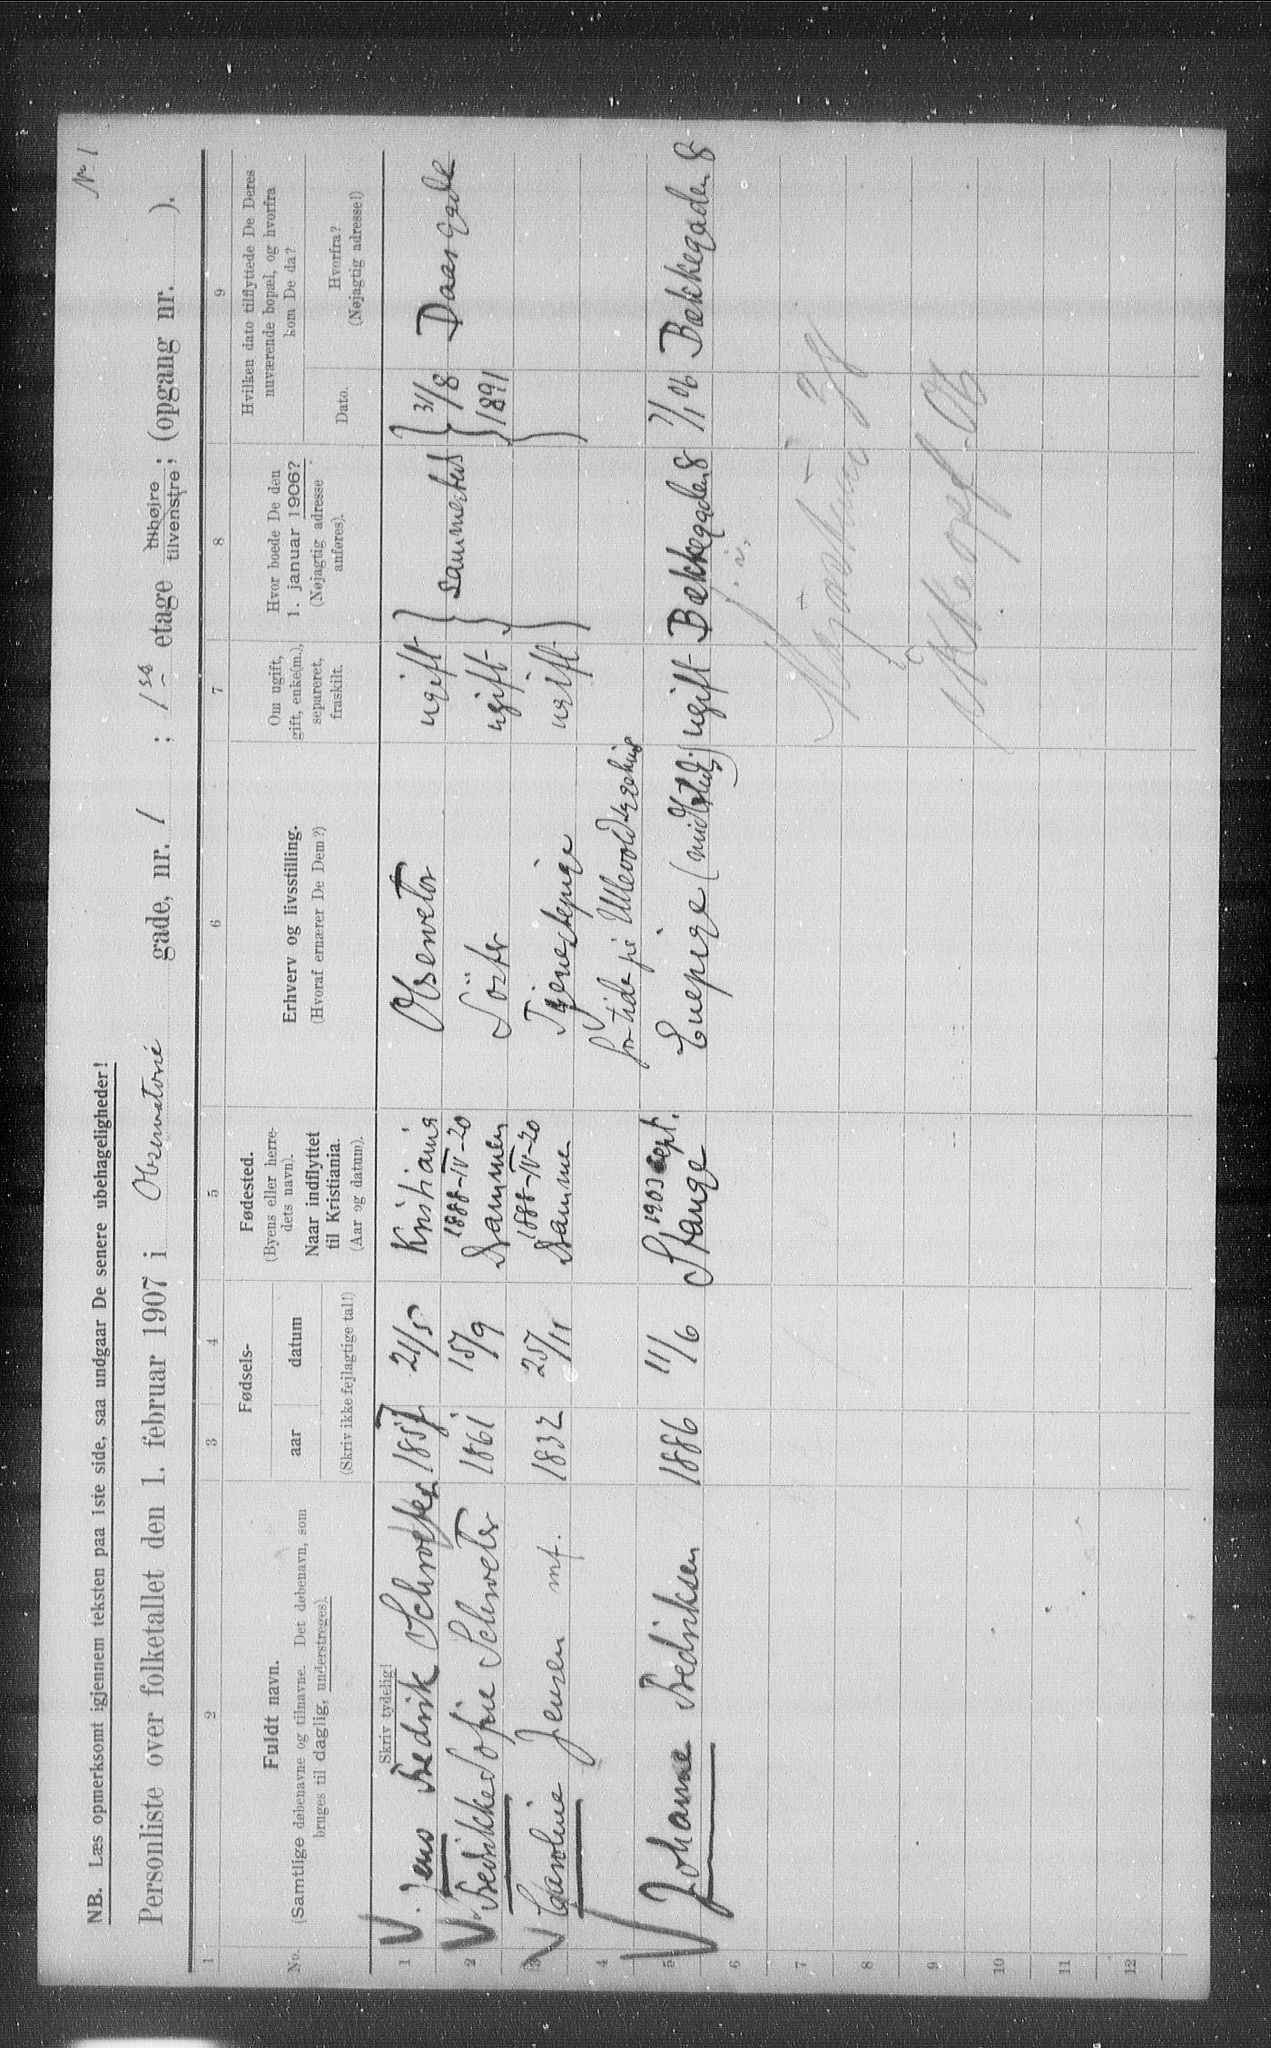 No 1
NB. Læs opmerksomt igjennem teksten paa 1ste side, saa undgaar De senere ubehageligheder!
Personliste over folketallet den 1. februar 1907 i Observatorie gade, nr. 1 ; 1ste etage tilhøjre tilvenstre ; (opgang nr. ).
1 2 3 4 5 6 7 8 9
No.
Fuldt navn.
(Samtlige døbenavne og tilnavne. Det døbenavn, som
bruges til daglig, understreges).
Fødsels-
aar datum
(Skriv ikke fejlagtige tal!)
Fødested.
(Byens eller herre-
dets navn).
Naar indflyttet
til Kristiania.
(Aar og datum).
Erhverv og livsstilling.
(Hvoraf ernærer De Dem?)
Om ugift,
gift, enke(m.),
separeret,
fraskilt.
Hvor boede De den
1. januar 1906?
(Nøjagtig adresse
anføres).
Hvilken dato tilflyttede De Deres
nuværende bopæl, og hvorfra
kom De da?
Dato.
Hvorfra?
(Nøjagtig adresse!)
Skriv tydelig!
1 Jens Fredrik Schroeter 1857 21/5 Kristiania Observator ugift
2 Fredrikke Sofie Schroeter 1861 15/9 1888-IV-20 Drammen Søster ugift sammesteds 31/8 1891 Daas Gade
3 Caroline Jensen 1832 25/11 1888-IV-20 Drammen Tjenestepige ugift
4 for tide på Ullevold sygehus
5 Johanne Fredriksen 1886 11/6 1903 sept. Stange Enepige (midlertid.) ugift Bækkegaden 8 7/1 06 Bækkegaden 8
6
7
8
9
10
11
12
Ikke opf. 06